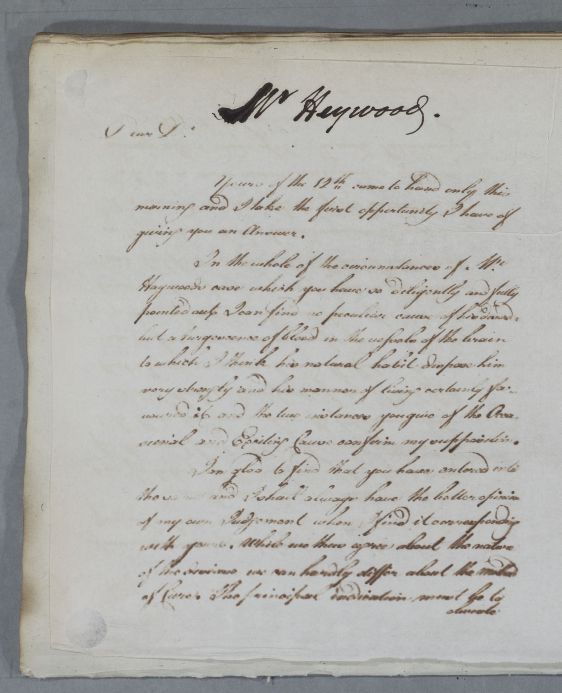 Mr Heywood.
Dear Dr.
Yours of the 12th came to hand only this
morning and I take the first opportunity I have of
giving you an Answer.
In the whole of the circumstances of Mr
Heywoods case which you have so diligently and fully
pointed out I can find no peculiar cause of his
but a turgescence of blood in the vessels of the brain
to which I think his natural habit disposes him
very strongly and his manner of living certainly fa-
voured it and the two instances you give of the Occa-
sional and Exciting Cause confirm my supposition.
I am glad to find that you have entered into
the same and I shall always have the better opinion
of my own Judgement when I find it corresponding
with yours. While we thus agree about the nature
of the disease we can hardly differ about the method
of Cure. The principal indication must be to
obviate